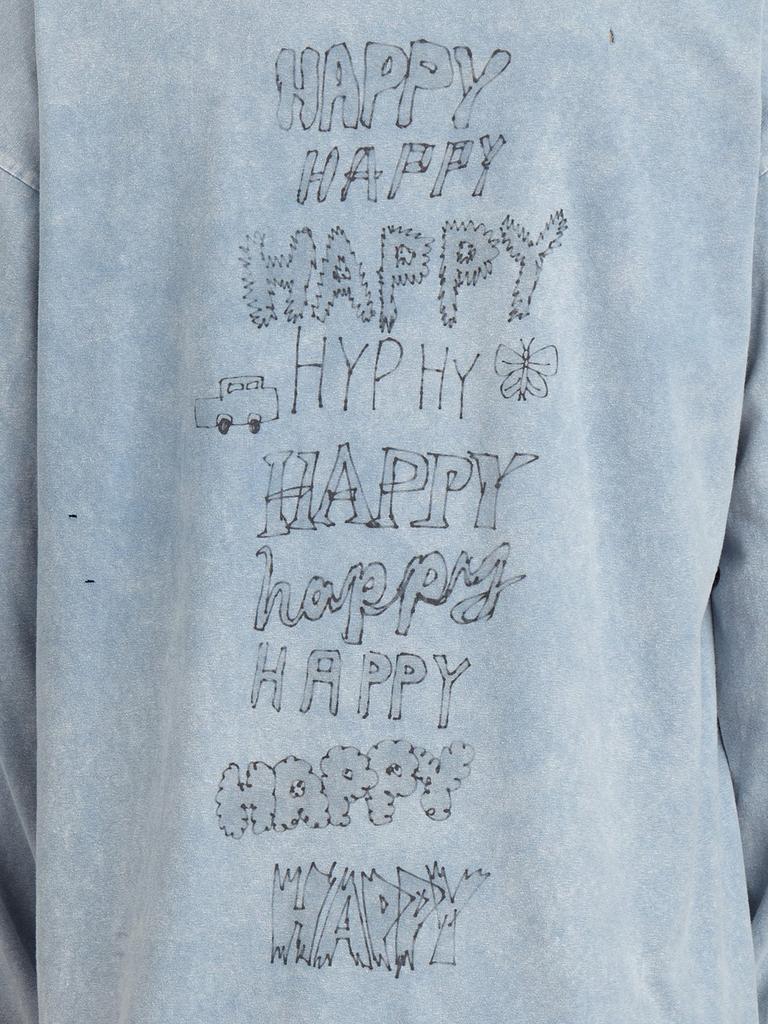 HAPPY
HAPPY
HAPPY
HYPHY
HAPPY
happy
HAPPY
HAPPY
HAPPY